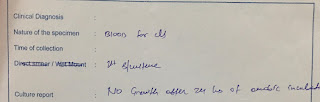 Clinical Diagnosis :
Nature of the specimen : Blood for c/s
Time of collection :
Direct smear / Wet Mount :
Culture report : NO Growth after 24 hrs of aerobic incubat